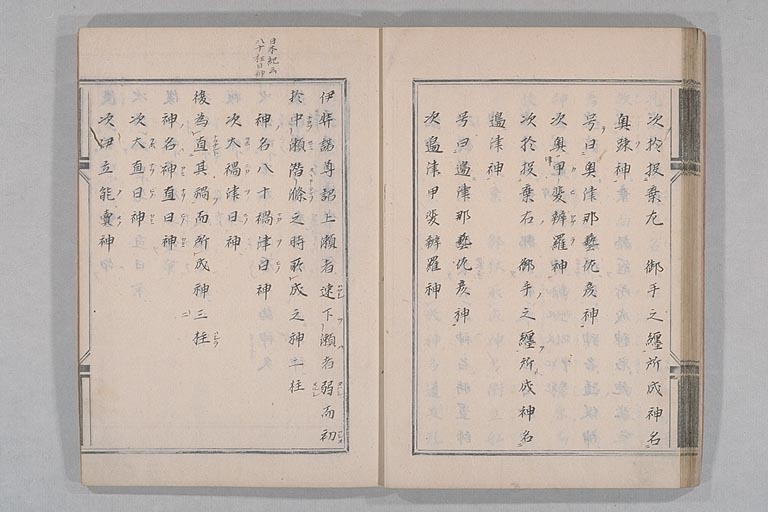 次於投棄左御手之纏所成神名
奥疎神
号曰奥津那藝佐彦神
次奥甲斐辨羅神
次於投棄右御手之纏所成神名
邉津神
号曰邉津那藝佐彦神
次邉津甲斐辨羅神
日本紀云
八十枉日神
伊弉諾尊詔上瀬者速下瀬者弱而初
於中瀬滌之時所成之神二柱
神名八十禍津日神
次大禍津日神
後為直其禍而所成神三柱
神名神直日神
次大直日神
次伊豆能賣神